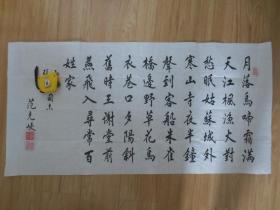 月落烏啼霜滿
天江楓漁火對
愁眠姑蘇城外
寒山寺夜半鐘
聲到客船朱雀
橋邊野草花烏
衣巷口夕陽斜
舊時王謝堂前
燕飛入尋常百
姓家
范克